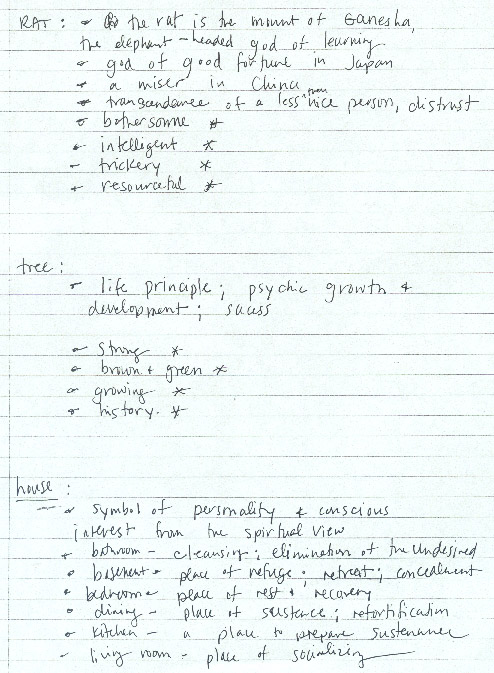 RAT : - the rat is the mount of Ganesha,
the elephant-headed god of learning
- god of good fortune in Japan
- a miser in China
- transcendance of a less than nice person, distrust
- bothersome *
- intelligent *
- trickery *
- resourceful *
tree :
- life principle ; psychic growth +
development ; sucess
- strong *
- brown + green *
- growing *
- history. *
house :
- symbol of personality & conscious
interest from the spirtual view
- bathroom - cleansing ; elimination of the undesired
- basement - place of refuge ; retreat ; concealment
- bedroom - place of rest + recovery
- dining - place of sustance ; refortification
- kitchen - a place to prepare sustenance
- living room - place of socializing